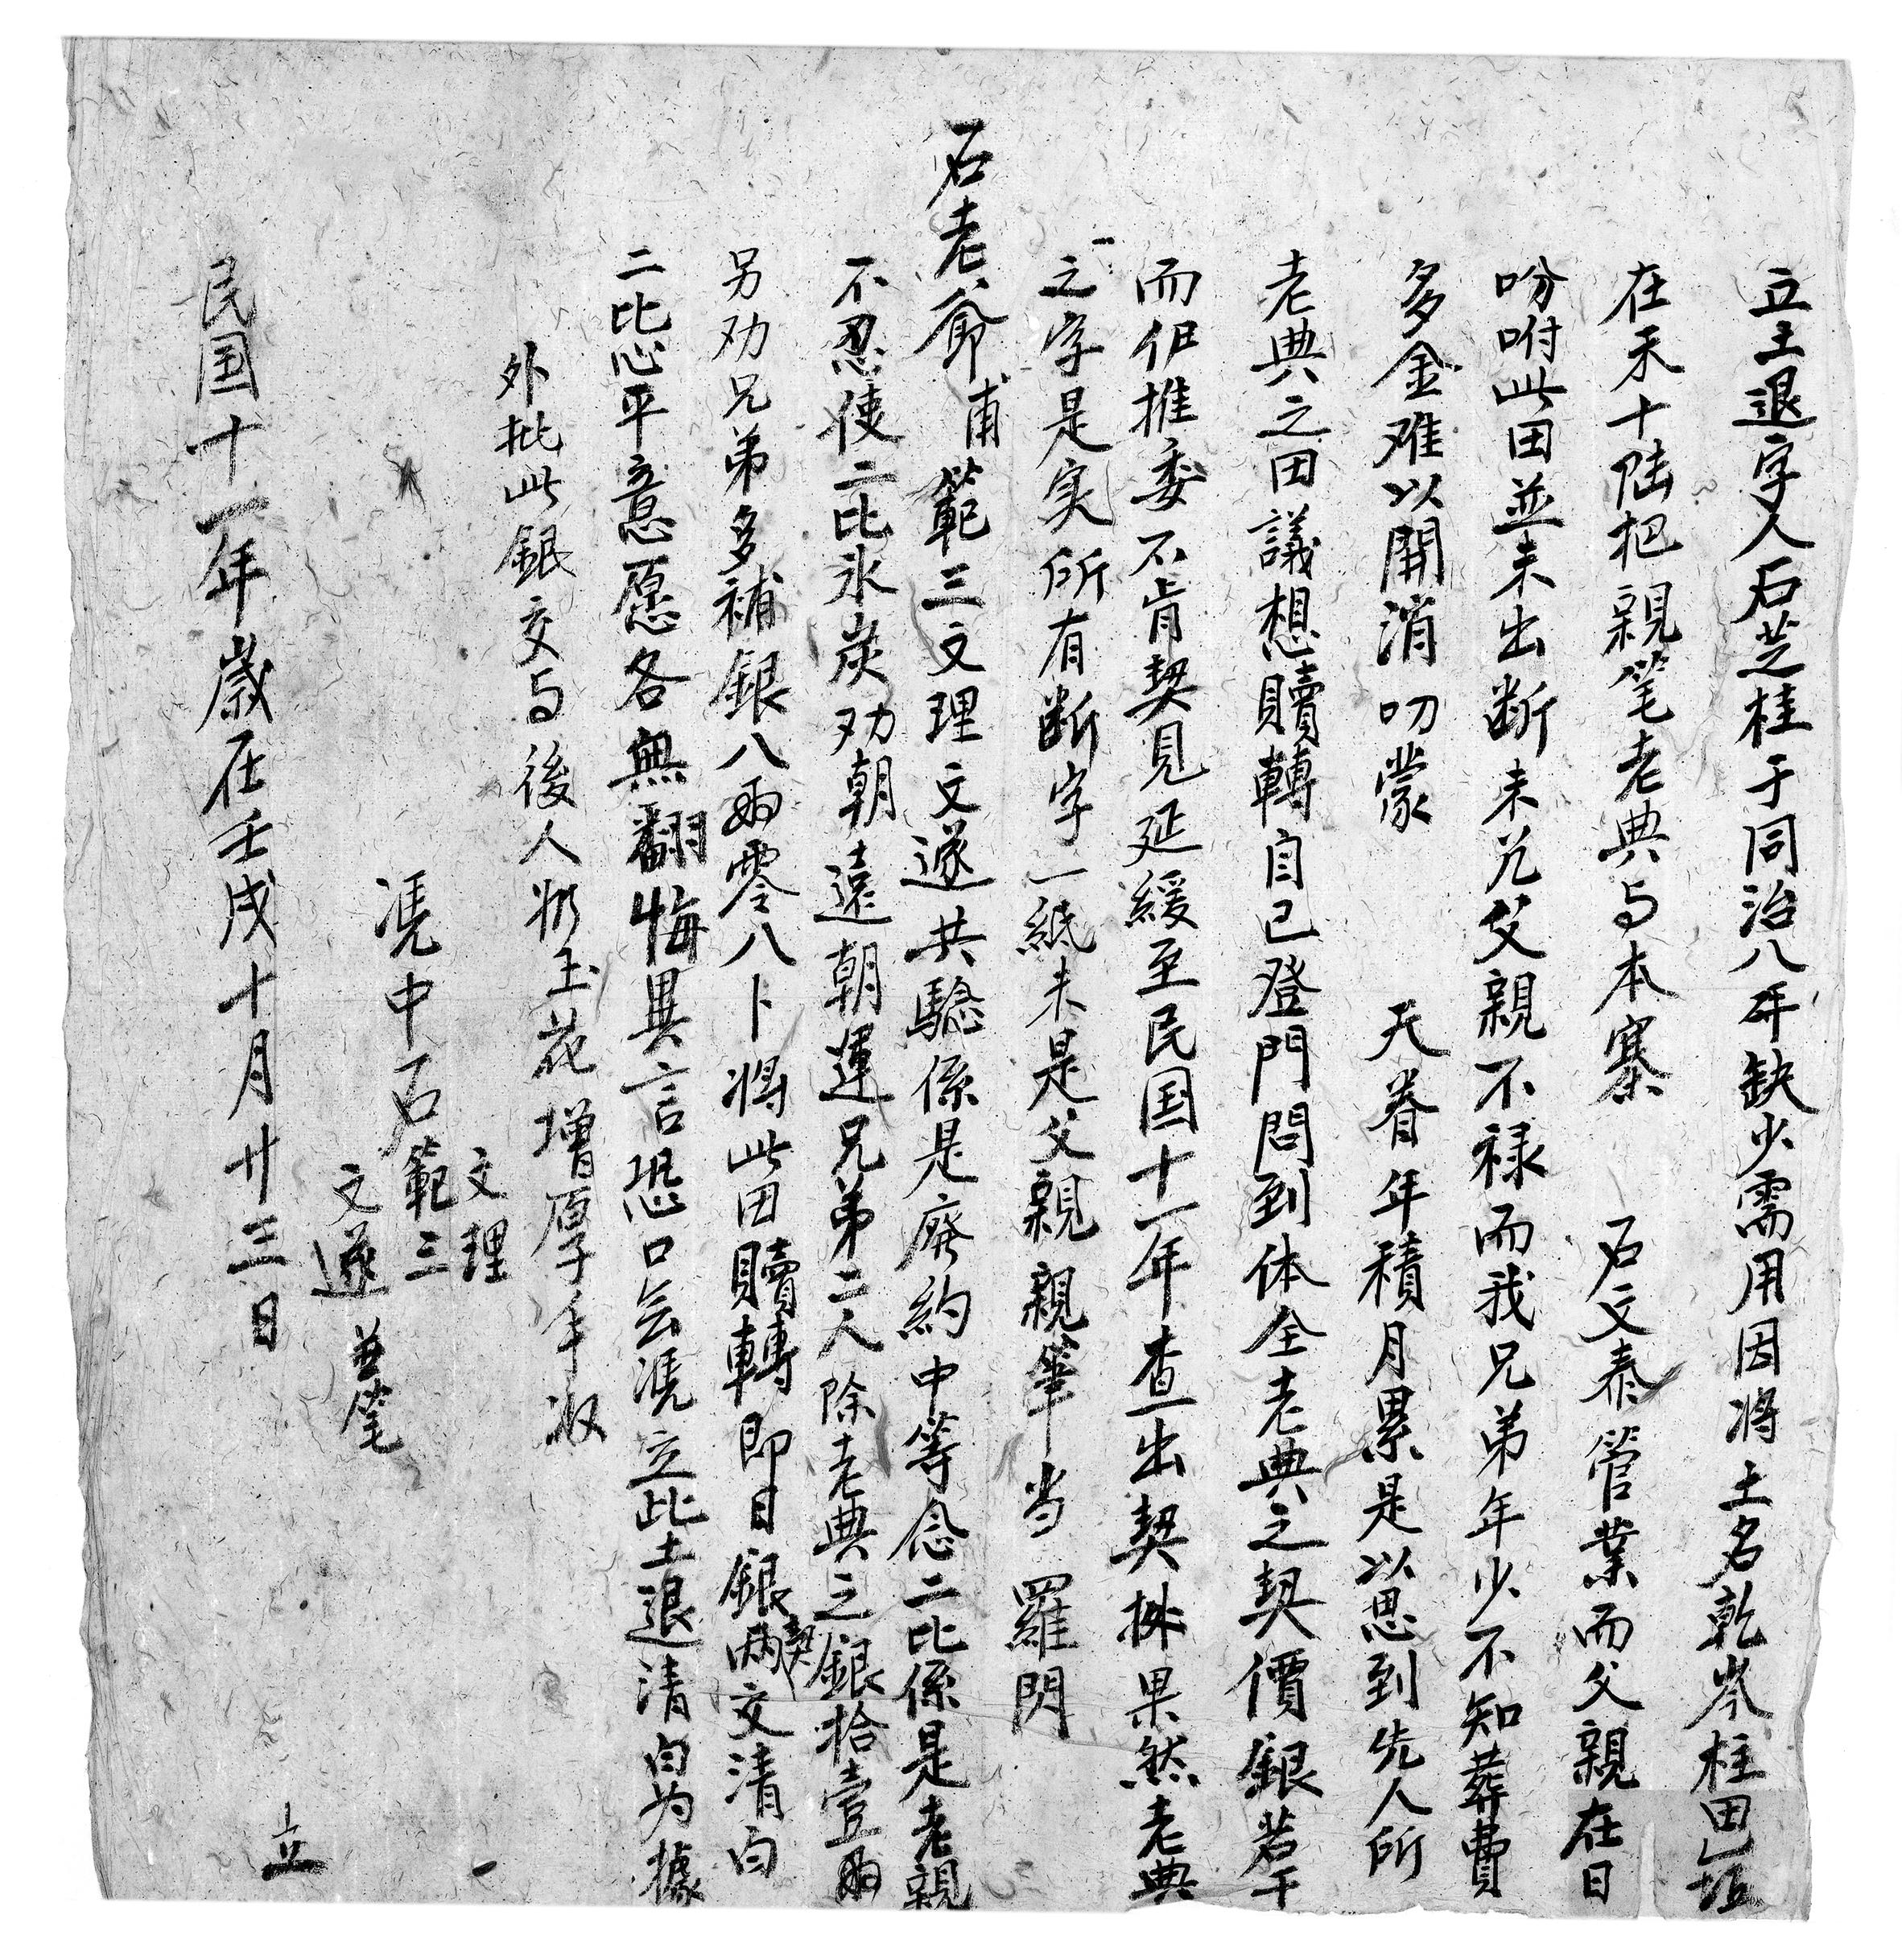 立土退字人石芝桂于同治八年缺少需用因将土名乾岑柱田乙坵
在禾十陆把親笔老典与本寨 石文泰管業而父親在日
吩咐此田並未出断未兑父親不禄而我兄弟年少不知葬費
多金难以開消叨蒙 天眷年積月累是以思到先人所
老典之田議想贖轉自己登門問到体全老典之契價銀若干
而但推委不肯契見延緩至民国十一年查出契排果然老典
之字是实所有断字一紙未是父親親筆当羅閃
石老爺甫範三文理文遂共騐係是廃約中等念二比係是老親
不忍使二比氷炭劝朝遠朝運兄弟二人除老典之銀拾壹両
另劝兄弟多補銀八両零八卜将此田贖轉即日銀兩契交清白
二比心平意愿各無翻悔異言恐口無凭立此土退清白为據
外批此銀交与後人形玉花增厚手收
文理
凭中石範三
文遂 並笔
民国十一年歲在壬戌十月廿三日 立